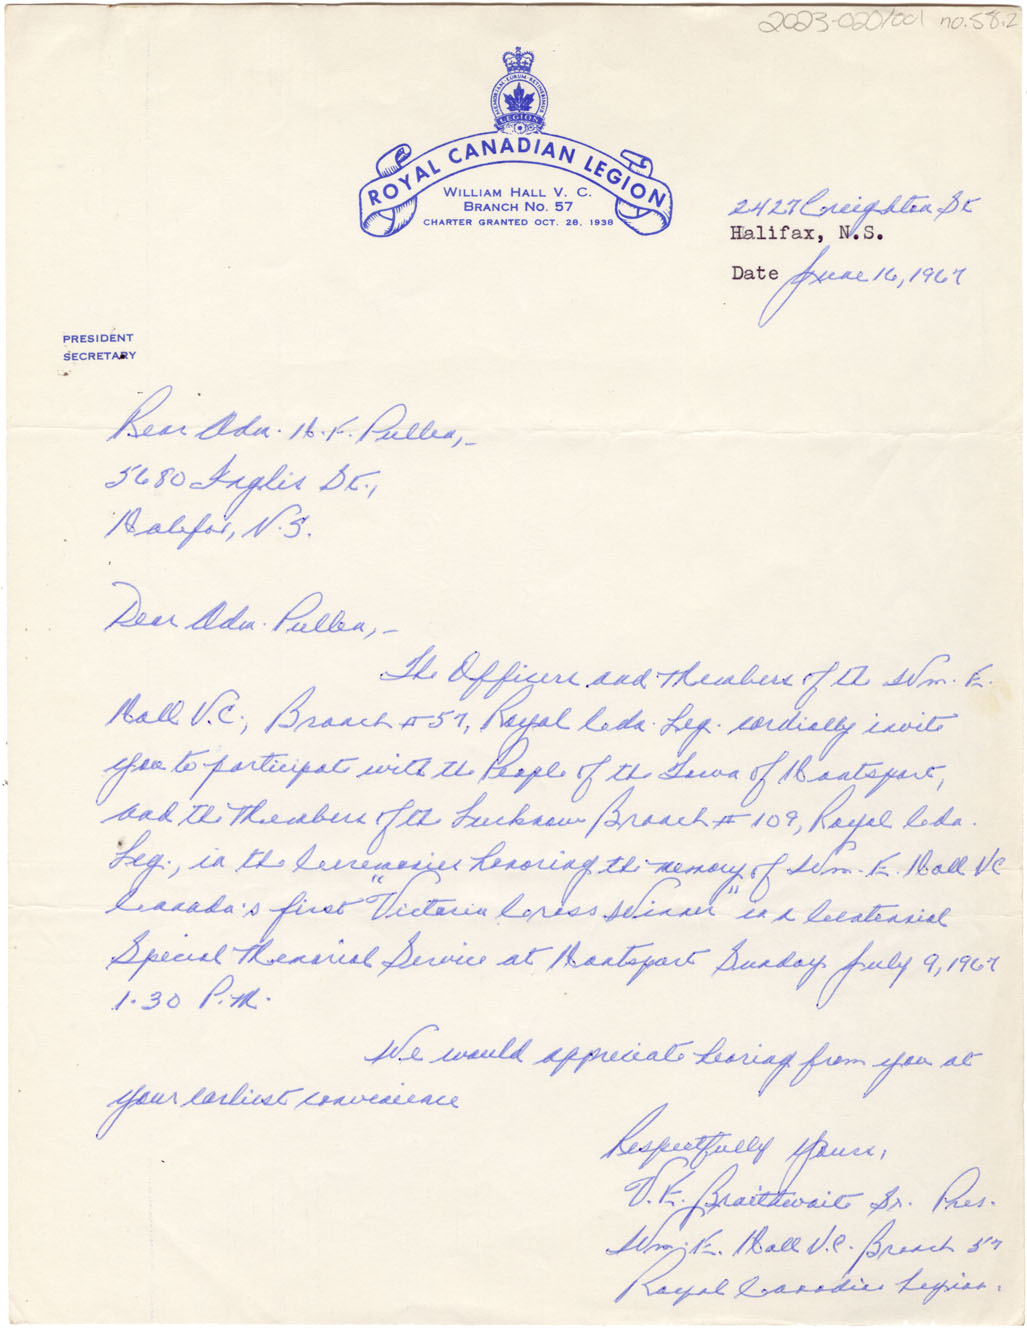 2023-020/001 no.58.2
MEMORIAM EORUM RETINEBIMUS
LEGION
ROYAL CANADIAN LEGION
WILLIAM HALL V. C.
BRANCH NO. 57
CHARTER GRANTED OCT. 28, 1938
2427 Creighton St
Halifax, N.S.
Date June 16, 1967
PRESIDENT
SECRETARY
Rear Adm. H. F. Pullen,-
5680 Inglis St.,
Halifax, N.S.
Dear Adm. Pullen,-
The Officers and Members of the Wm. E.
Hall V.C., Branch #57, Royal Cda. Leg. cordially invite
you to participate with the People of the Town of Hantsport,
and the Members of the Lucknow Branch # 109, Royal Cda.
Leg., in the Ceremonies honoring the memory of Wm. E. Hall VC
Canada's first "Victoria Cross Winner" in a Centennial
Special Memorial Service at Hantsport Sunday July 9, 1967
1.30 P.M.
We would appreciate hearing from you at
your earliest convenience
Respectfully Yours,
V.E. Braithwaite Sr. Pres.
Wm. E. Hall V.C. Branch 57
Royal Canadian Legion.